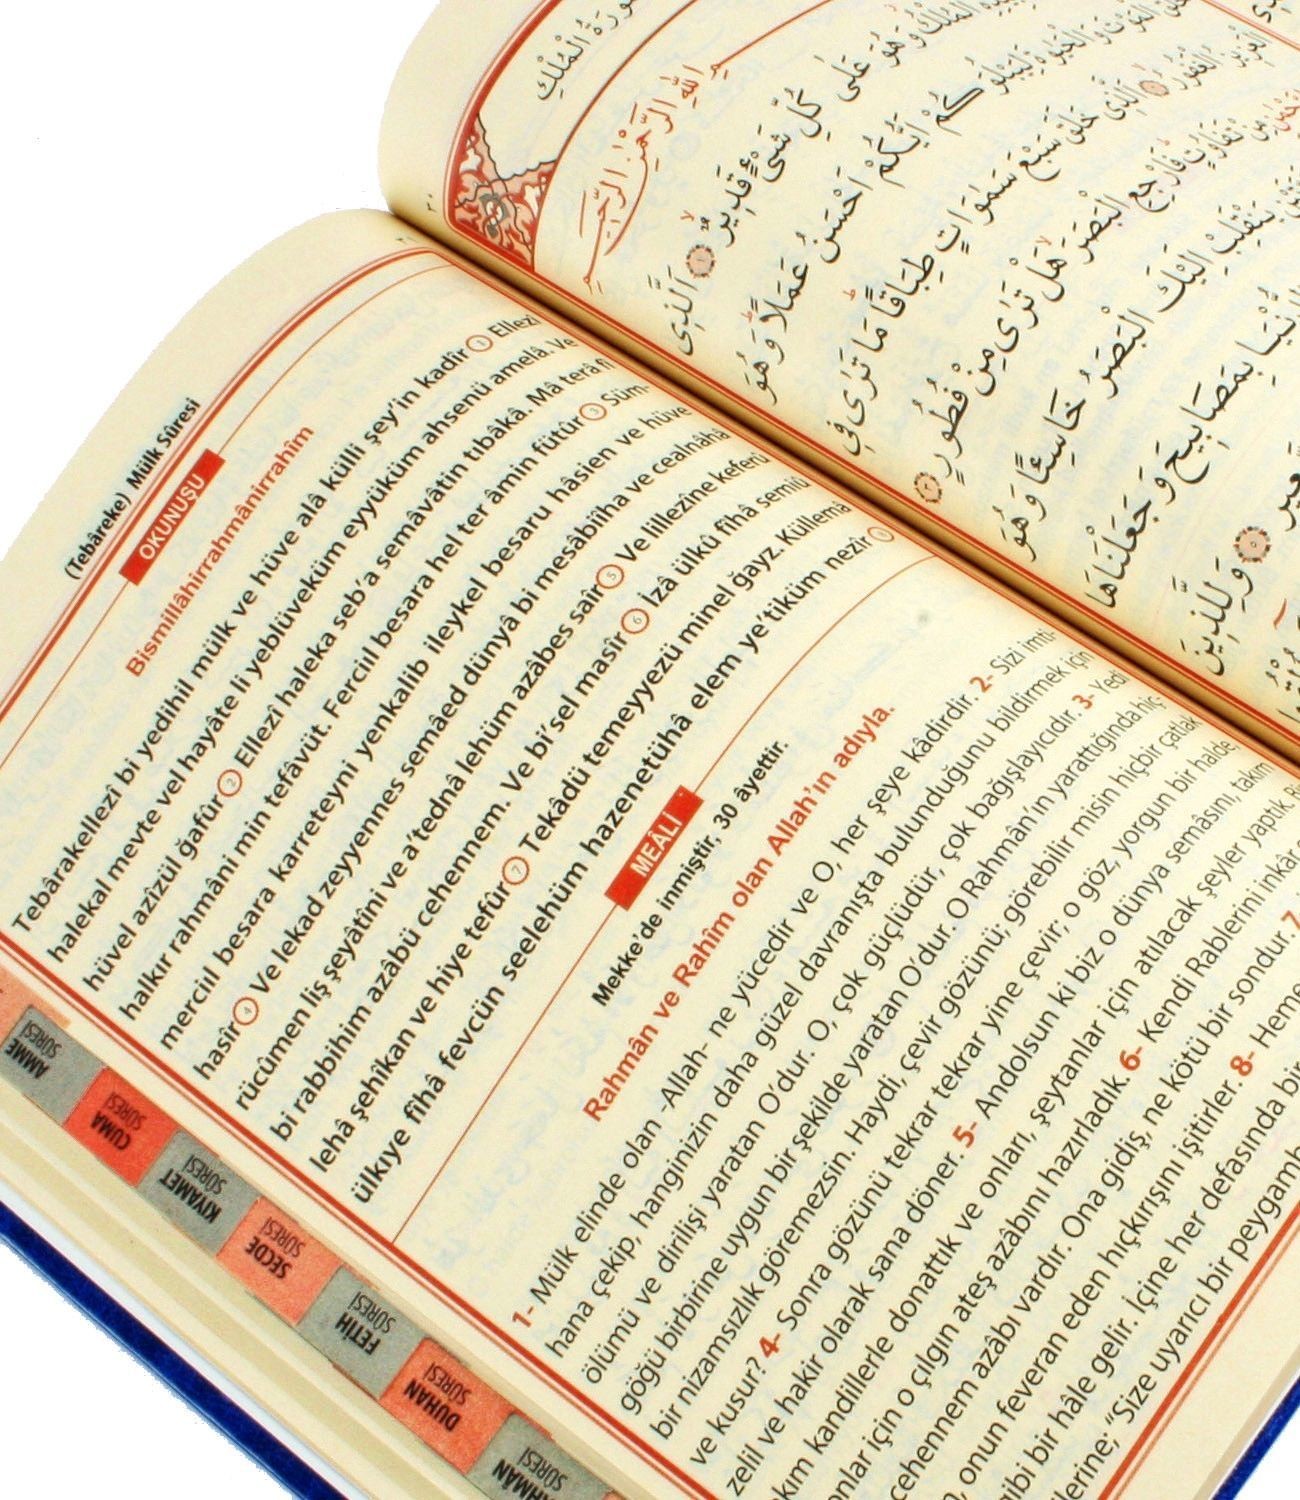 (Tebâreke) Mülk Sûresi
OKUNUŞU
Bismillâhirrahmânirrahîm
Tebârakellezî bi yedihil mülk ve hüve alâ külli şey'in kadîr 1 Ellezî
halekal mevte vel hayâte li yeblüveküm eyyüküm ahsenü amelâ. Ve
hüvel azîzül ğafûr 2 Ellezî haleka seb'a semâvâtin tıbâkâ. Mâ terâ fî
halkır rahmâni min tefâvüt. Ferciıl besara hel ter âmin fütür 3 Süm-
merciıl besara karreteyni yenkalib ileykel besaru hâsien ve hüve
hasîr 4 Ve lekad zeyyennes semâed dünyâ bi mesâbîiha ve cealnâhâ
rücûmen liş şeyâtîni ve a'tednâ lehüm azâbes saîr 5 Ve lillezîne keferû
bi rabbihim azâbü cehennem. Ve bi'sel masîr 6 İzâ ülkû fîhâ semiû
lehâ şehîkan ve hiye tefûr 7 Tekâdü temeyyezü minel ğayz. Küllemâ
ülkıye fîhâ fevcün seelehüm hazenetühâ elem ye'tiküm nezîr 8
MEÂLİ
Mekke'de inmiştir, 30 âyettir.
Rahmân ve Rahîm olan Allah'ın adıyla.
1- Mülk elinde olan -Allah- ne yücedir ve O, her şeye kâdirdir. 2- Sizi imti-
hana çekip, hanginizin daha güzel davranışta bulunduğunu bildirmek için
ölümü ve dirilişi yaratan O'dur. O, çok güçlüdür, çok bağışlayıcıdır. 3- Yedi
göğü birbirine uygun bir şekilde yaratan O'dur. O Rahmân'ın yarattığında hiç-
bir nizamsızlık göremezsin. Haydi, çevir gözünü; görebilir misin hiçbir çatlak
ve kusur? 4- Sonra gözünü tekrar tekrar yine çevir; o göz, yorgun bir halde,
zelil ve hakir olarak sana döner. 5- Andolsun ki biz o dünya semâsını, takım
kım kandillerle donattık ve onları, şeytanlar için atılacak şeyler yaptık.
onlar için o çılgın ateş azâbını hazırladık. 6- Kendi Rablerini inkâr
cehennem azâbı vardır. Ona gidiş, ne kötü bir sondur. 7
onun feveran eden hıçkırışını işitirler. 8- Heme
gibi bir hâle gelir. İçine her defasında bir
lerine; "Size uyarıcı bir peygamb
AMME
SÛRESİ
CUMA
SÛRESİ
KIYAMET
SÛRESİ
SECDE
SÛRESİ
FETİH
SÛRESİ
DUHAN
SÛRESİ
RAHMAN
SÛRESİ
سُورَةُ الْمُلْكِ
اللّٰهِ الرَّحْمٰنِ الرَّحِيمِ
الْمُلْكُ وَهُوَ عَلٰى كُلِّ شَىْءٍ قَدِيرٌ ١ اَلَّذِى
الْمَوْتَ وَالْحَيٰوةَ لِيَبْلُوَكُمْ اَيُّكُمْ اَحْسَنُ عَمَلًا وَهُوَ
الْعَزِيزُ الْغَفُورُ ٢ اَلَّذِى خَلَقَ سَبْعَ سَمٰوَاتٍ طِبَاقًا مَا تَرٰى فِى
مِنْ تَفَاوُتٍ فَارْجِعِ الْبَصَرَ هَلْ تَرٰى مِنْ فُطُورٍ ٣
يَنْقَلِبْ اِلَيْكَ الْبَصَرُ خَاسِئًا وَهُوَ
الدُّنْيَا بِمَصَابِيحَ وَجَعَلْنَاهَا
السَّعِيرِ ٥ وَلِلَّذِينَ